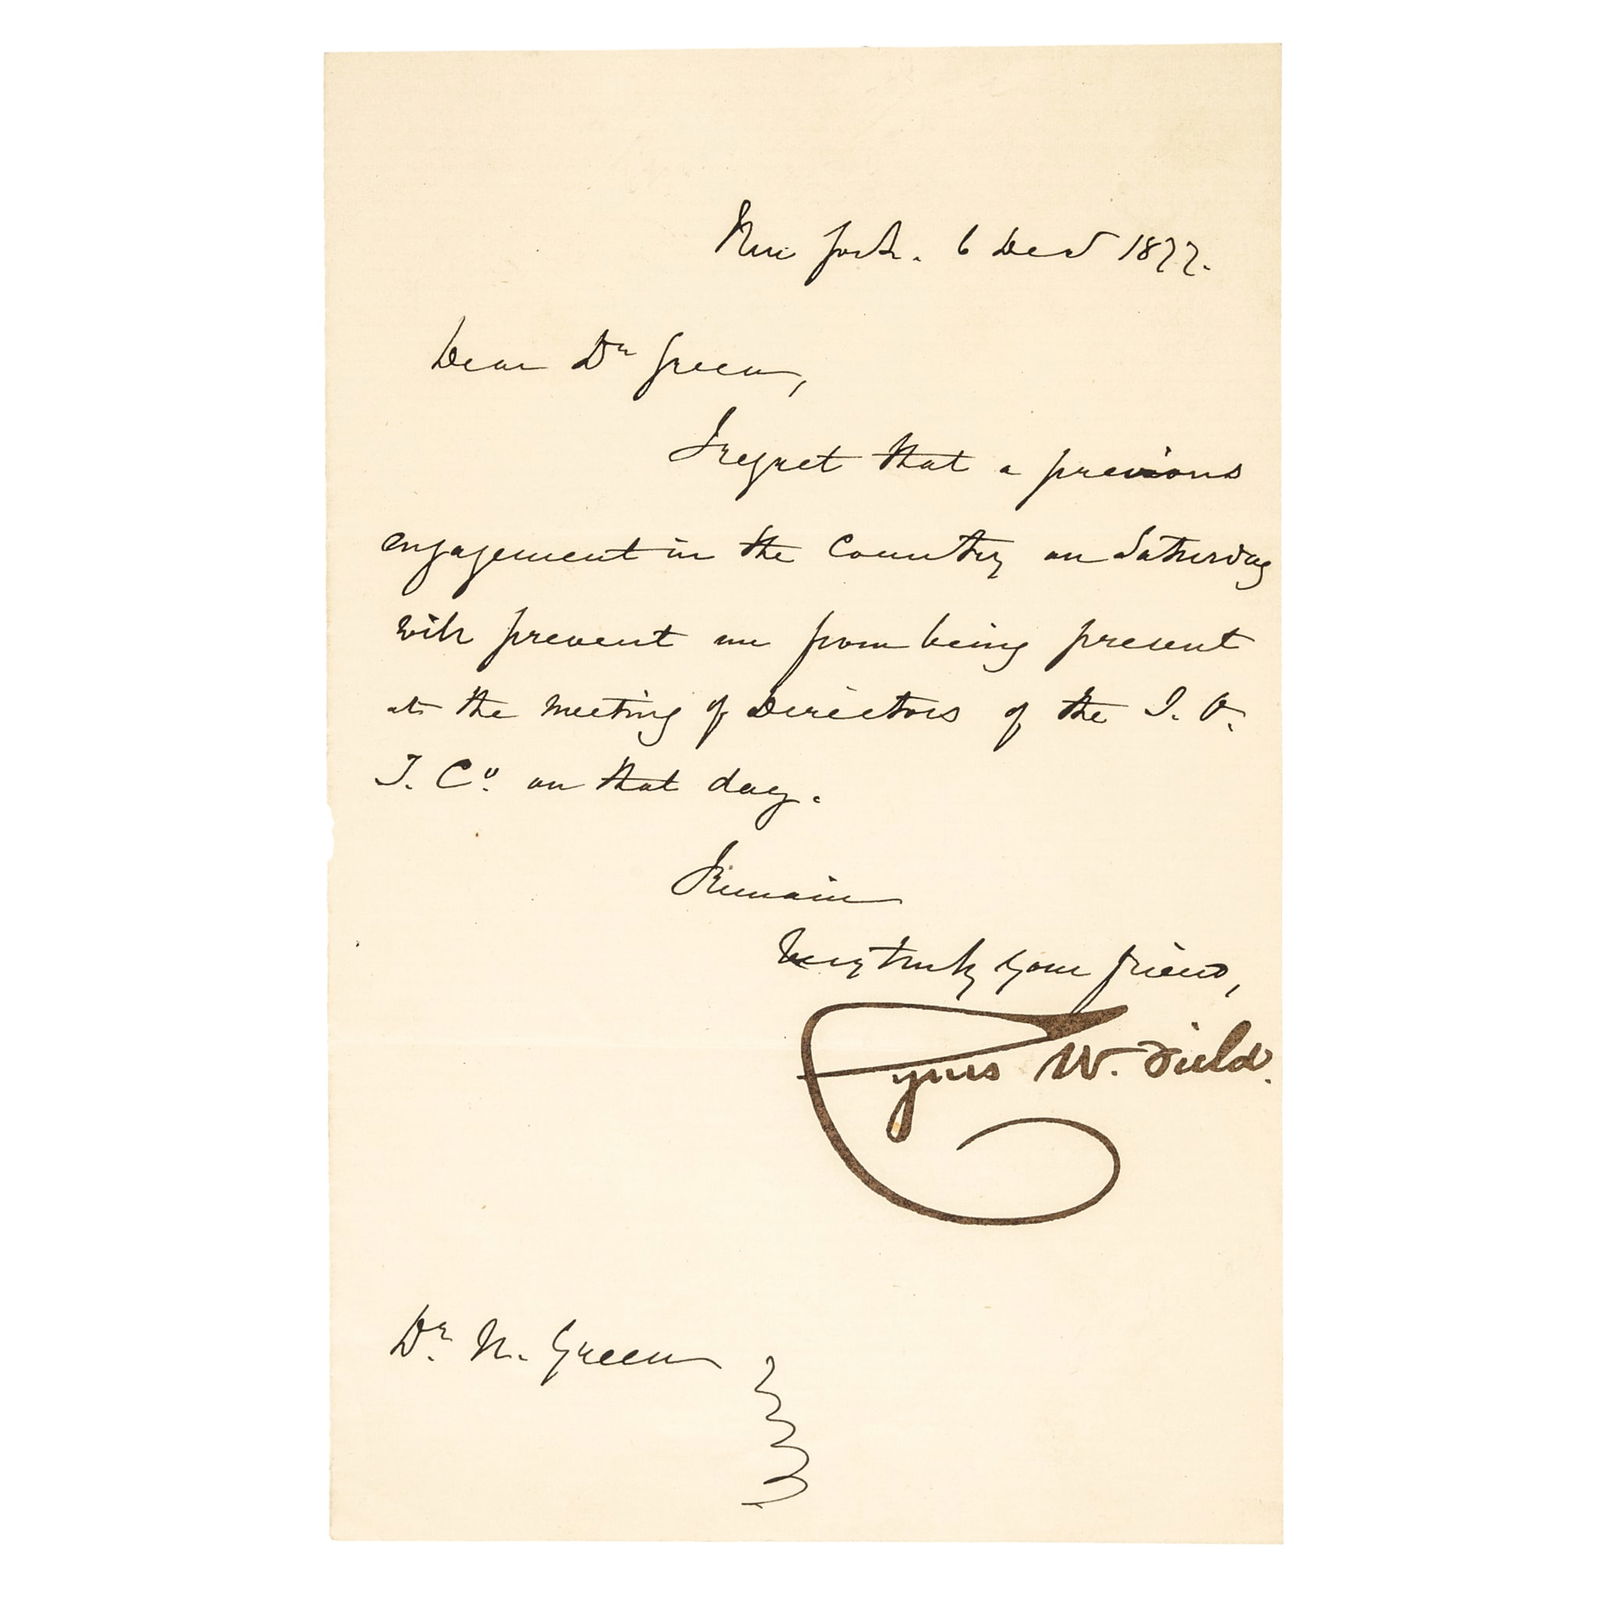 New York. 6 Decr 1877.
Dear Dr Green,
I regret that a previous
engagement in the Country on Saturday
will prevent me from being present
at the meeting of Directors of the I. O.
T. Co. on that day.
I remain
Very truly your friend,
Cyrus W. Field.
Dr. N. Green